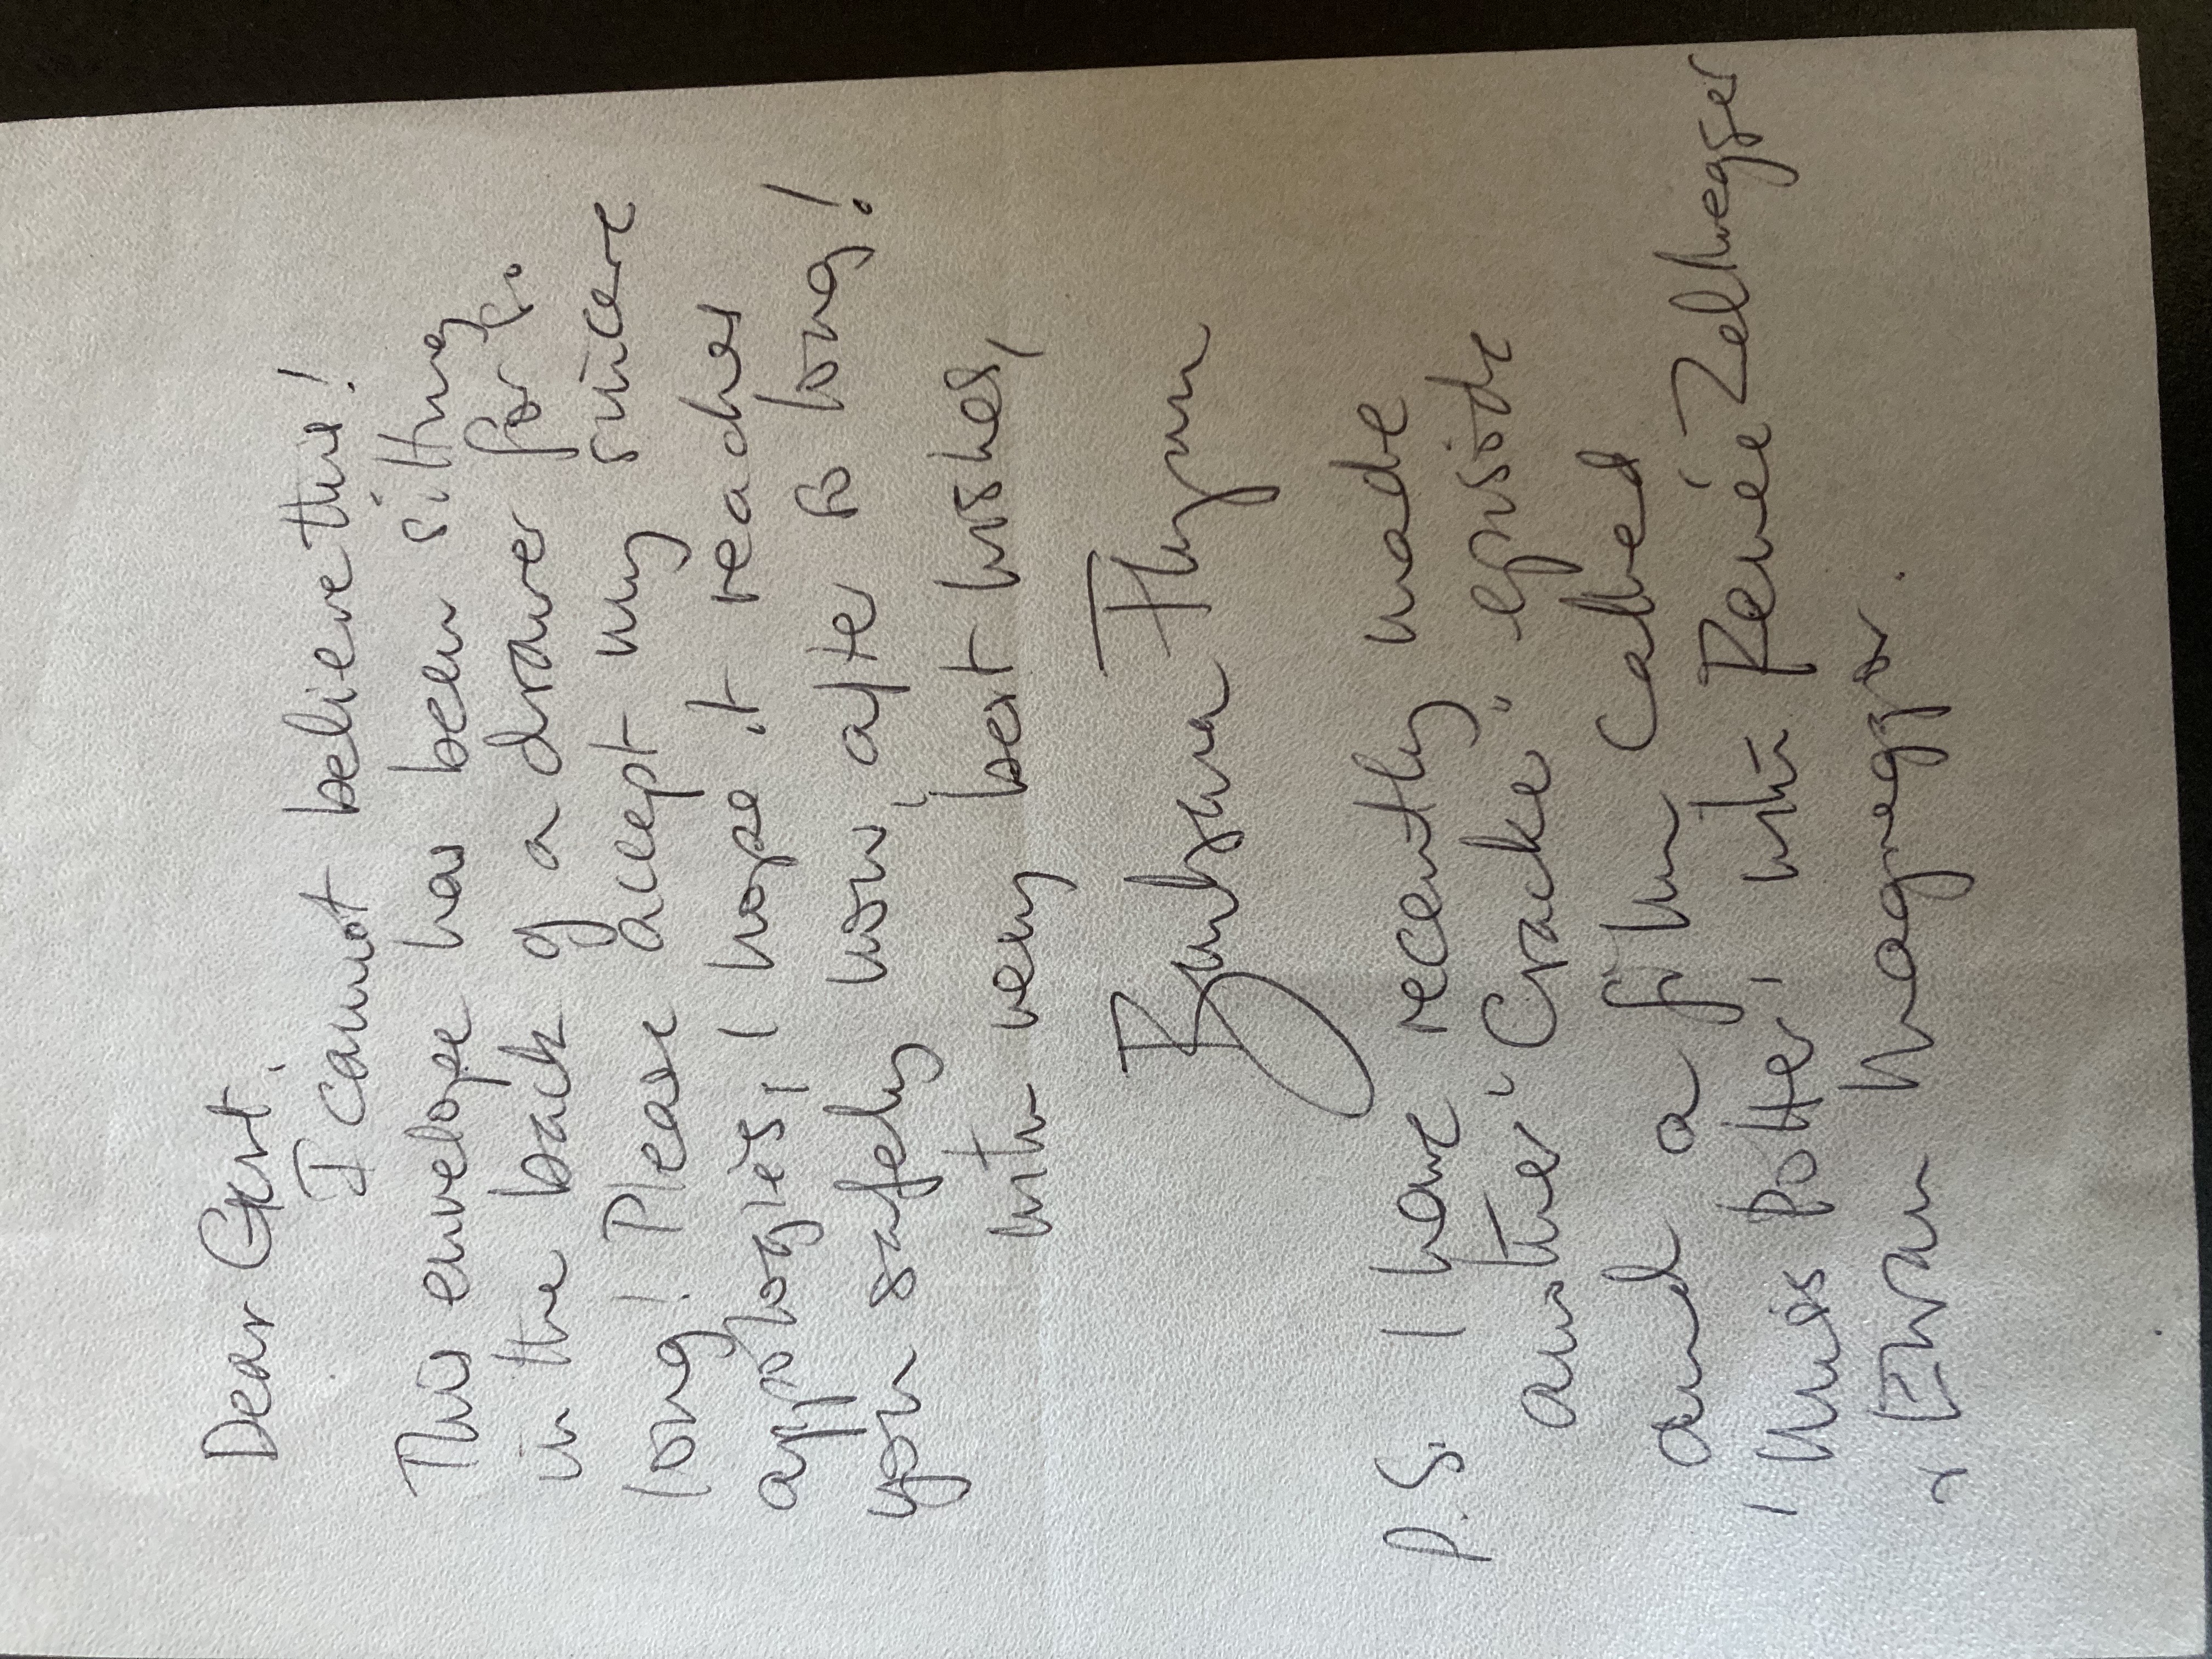 Dear Gert,
I cannot believe this!
This envelope has been sitting
in the back of a drawer for so
long! Please accept my sincere
appologies, I hope it reaches
you safely now, after so long!
with very best wishes,
Barbara Flynn
P.S. I have recently made
another 'Cracker' episode
and a film called
'Miss Potter' with Renée Zellwegger
& Ewan Macgreggor.